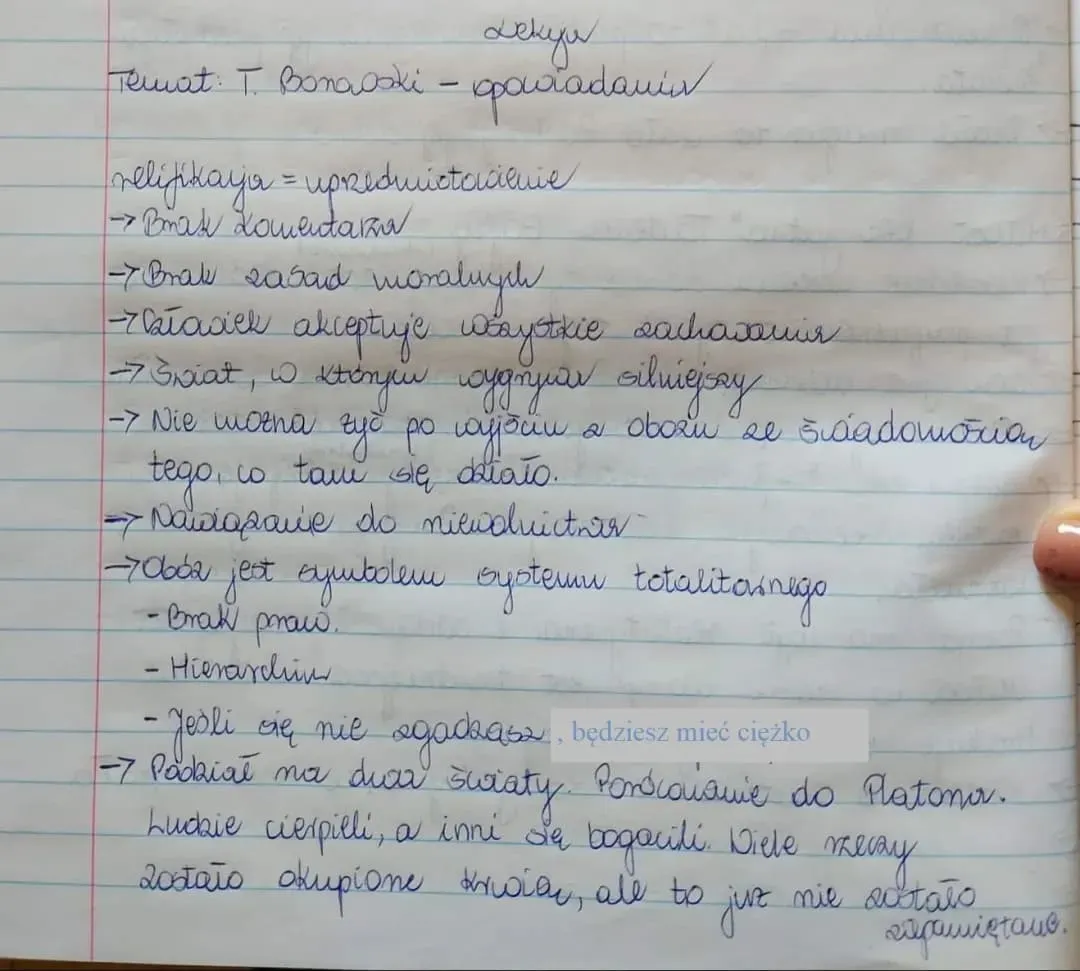 Lekcja
Temat: T. Borowski – opowiadania
relifikacja = uprzedmiotowienie
→ Brak komentarza
→ Brak zasad moralnych
→ Człowiek akceptuje wszystkie zachowania
→ Świat, w którym wygrywa silniejszy
→ Nie można żyć po wyjściu z obozu ze świadomością
tego, co tam się działo.
→ Nawiązanie do niewolnictwa
→ Obóz jest symbolem systemu totalitarnego
- Brak praw.
- Hierarchia
- Jeśli się nie zgadzasz, będziesz mieć ciężko
→ Podział na dwa światy. Porównanie do Platona.
Ludzie cierpieli, a inni się bogacili. Wiele rzeczy
zostało okupione krwią, ale to już nie zostało
zapamiętane.